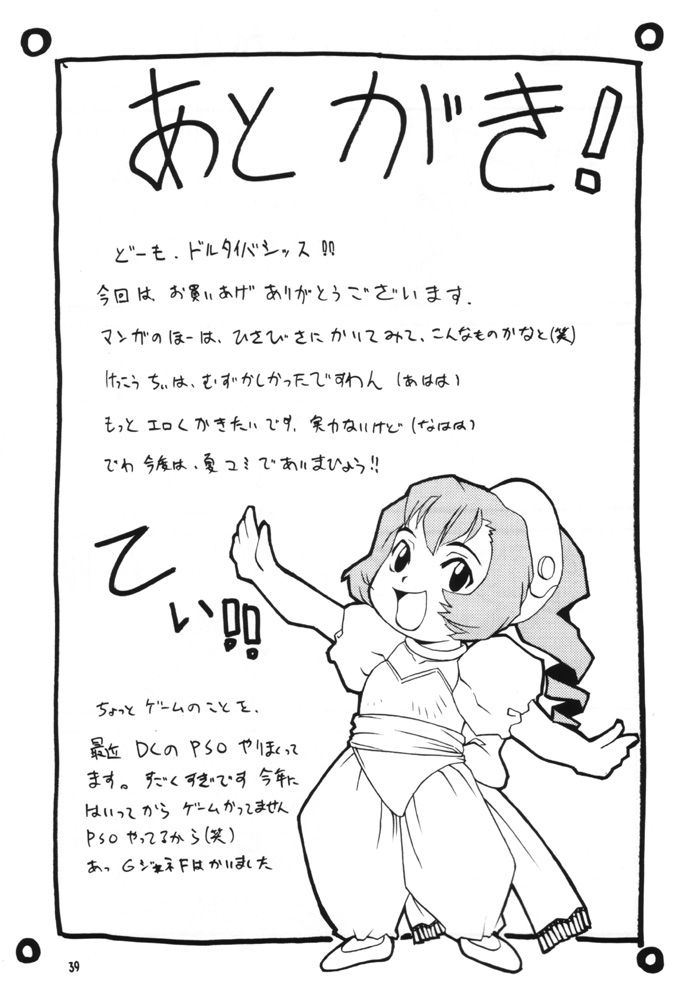 あとがき!
どーも、ドルタイバシッス!!
今回は、お買いあげ ありがとうございます.
マンガのほーは、ひさびさにかいてみて、こんなものかなと(笑)
けっこう ちぃは、むずかしかったですわん (あはは)
もっと エロくかきたいです、実力ないけど(なはは)
でわ 今度は、夏コミであいまひょう!!
てい!!
ちょっとゲームのことを、
最近 DCの PSO やりまくって
ます。すごくすぎです 今年に
はいってから ゲームかってません
PSOやってるから(笑)
あっ GジェネFはかいました
39